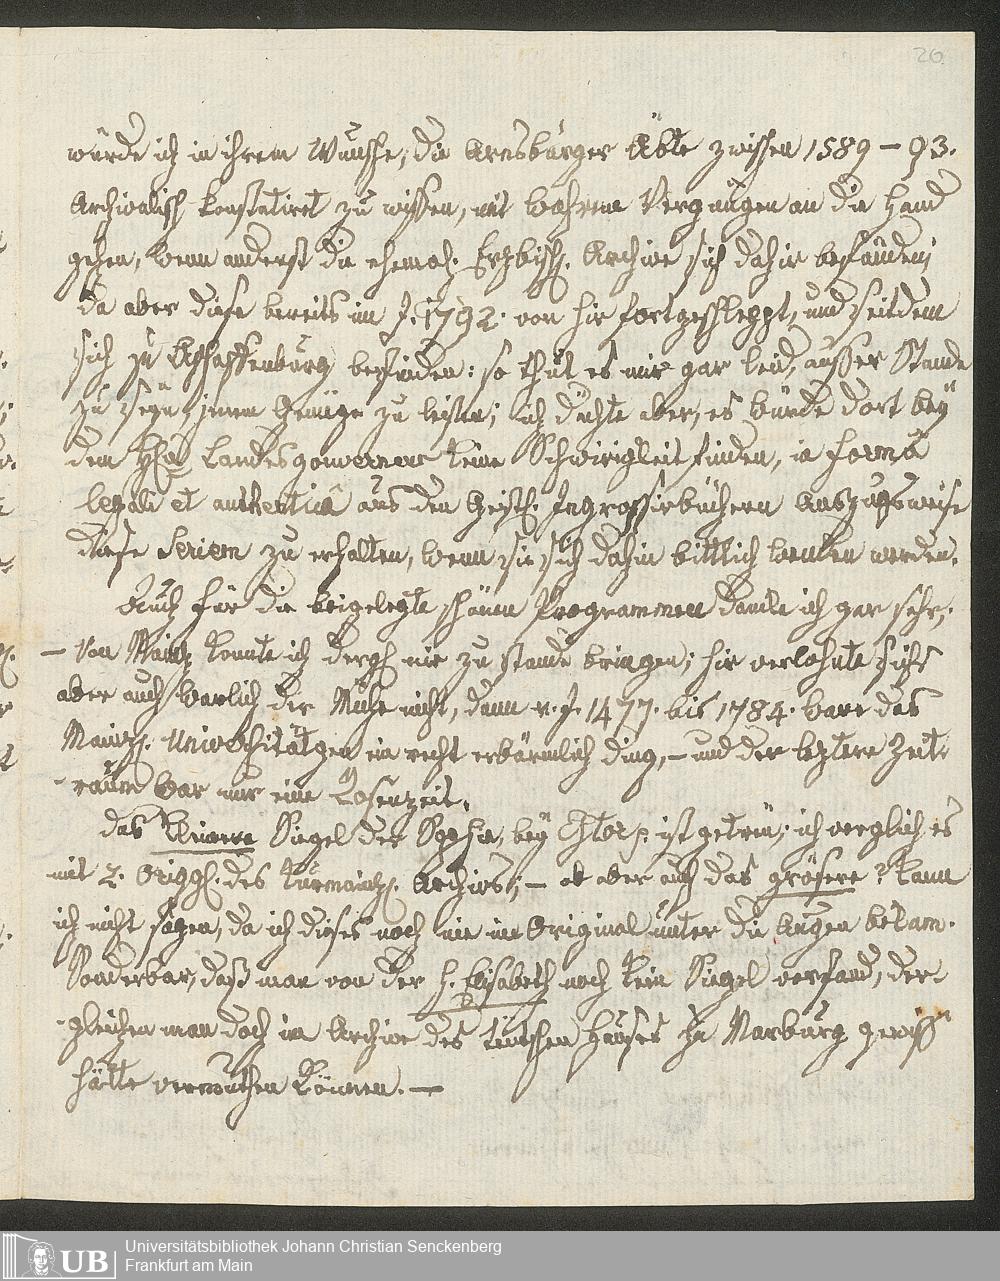 20.
würde ich in ihrem Wunsche, die Arnsburger Äbte zwischen 1589 – 93.
Archivalisch konstatiret zu wissen, mit wahrem Vergnügen an die Hand
gehen, wenn anderst die ehemal. Erzbisch. Archive sich dahir befänden;
da aber diese bereits im J. 1792. von hir fortgeschleppt, und seitdem
sich zu Aschaffenburg befinden: so thut es mir gar leid, ausser Stande
zu seyn jenem Genüge zu leisten; ich dächte aber, es würde dort bey
dem Landesgouverneur keine Schwirigkeit finden, in forma
legali et authentica aus den Geistl. Ingrossirbüchern Auszugsweise
diese Seriem zu erhalten, wenn sie sich dahin bittlich wenden werden.
Auch für die beigelegte schönen Programmen danke ich gar sehr;
– Von Mainz konnte ich dergl. nie zu stande bringen; hir verlohnte sichs
aber auch warlich der Mühe nicht, dann v. J. 1477. bis 1784. ware das
Mainz. ein recht erbärmlich ding, – und der leztere Zeit-
-raum war nur eine Rosenzeit.
Das kleinere Siegel der Sophia, bey ist getreu; ich verglich es
mit 2. Origgl. des Kurmainz. Archivs; – ob aber auch das grösere? kann
ich nicht sagen, da ich dieses noch nie im Original unter die Augen bekam.
Sonderbar, daß man von der h. Elisabeth noch kein Siegel vorfand, der-
-gleichen man doch im Archive des teutschen Hauses zu Marburg gewiß
hätte vermuthen können. –
UB
Universitätsbibliothek Johann Christian Senckenberg
Frankfurt am Main